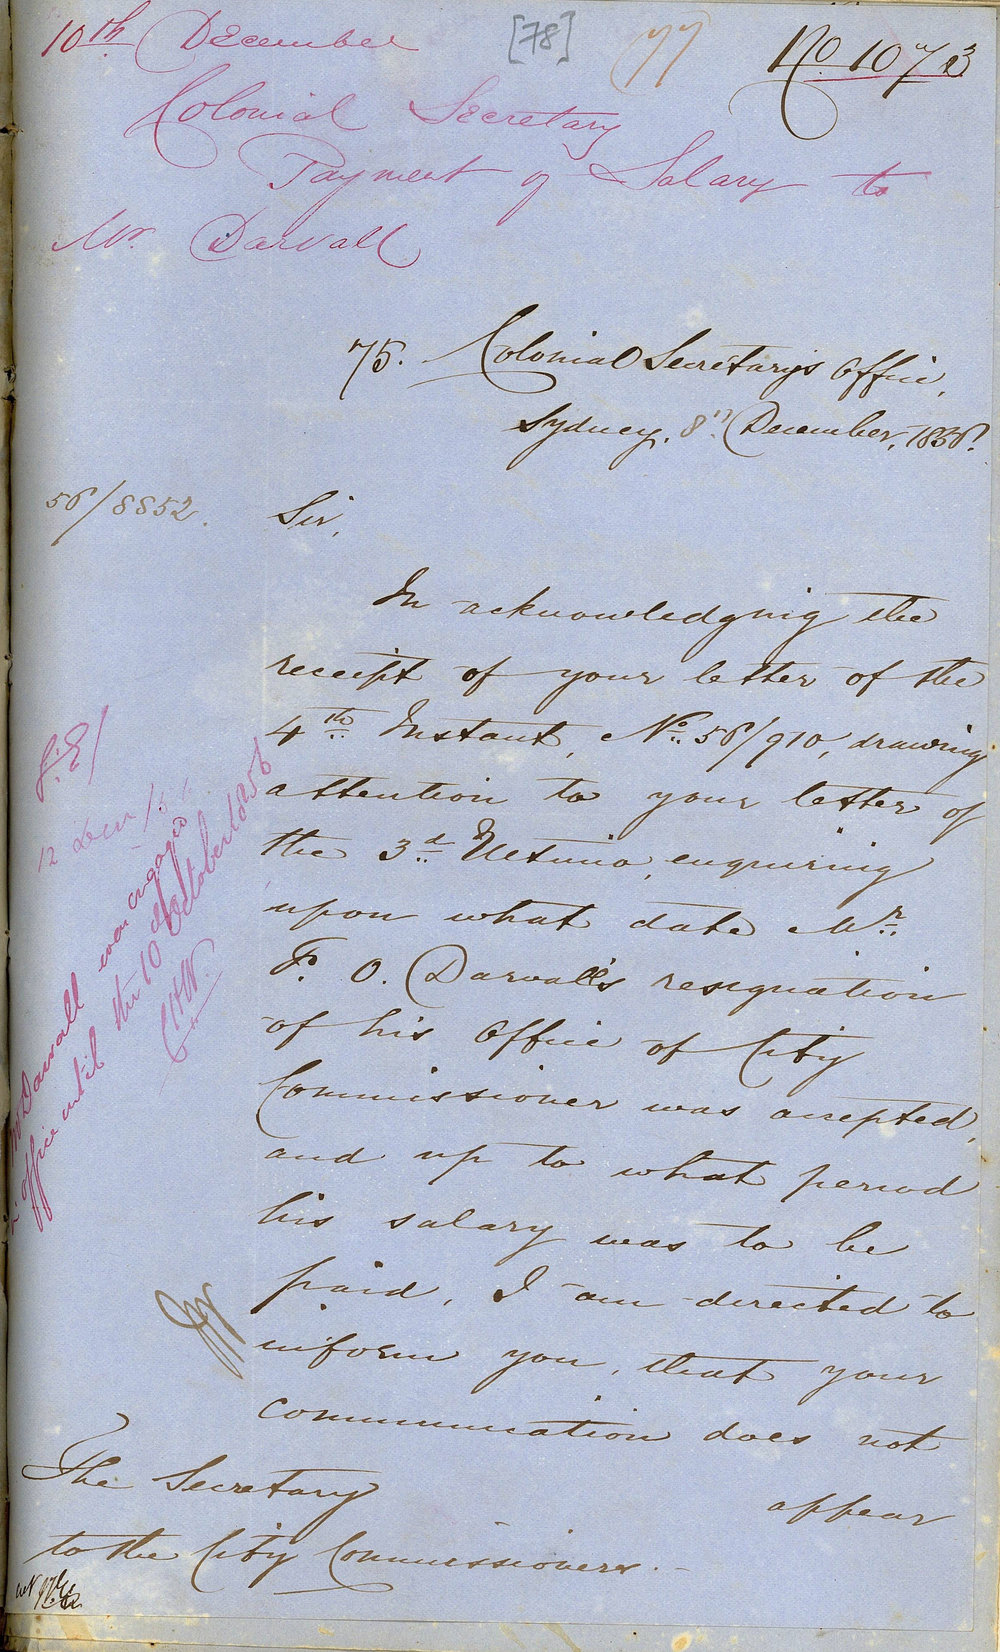 10th December
[78]
77
No 1073
Colonial Secretary
Payment of Salary to
Mr. Darvall
75. Colonial Secretary's Office,
Sydney, 8th December, 1856.
56/8852.
Sir,
In acknowledging the
receipt of your letter of the
4th Instant, No. 56/910, drawing
attention to your letter of
the 3d Ultimo, enquiring
upon what date Mr.
F. O. Darvall's resignation
of his Office of City
Commissioner was accepted,
and up to what period
his salary was to be
paid, I am directed to
inform you, that your
communication does not
appear
The Secretary
to the City Commissioners.
12 Decr
Mr Darvall was engaged
in office until the 10 October 1856